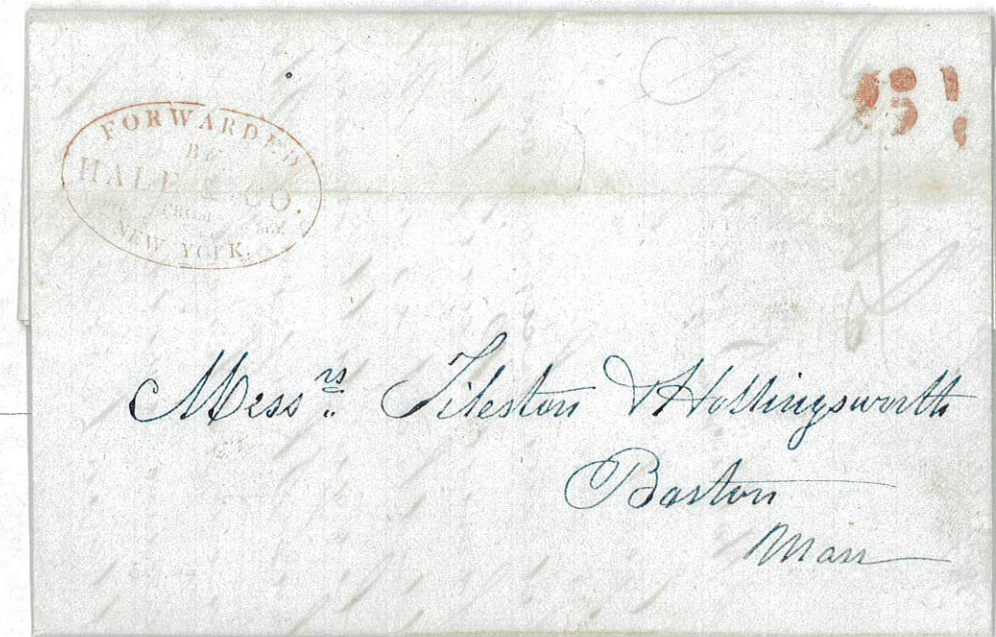 FORWARDED
BY
HALE & CO.
FROM
NEW YORK.
Mess.rs Tileston & Hollingsworth
Boston
Mass